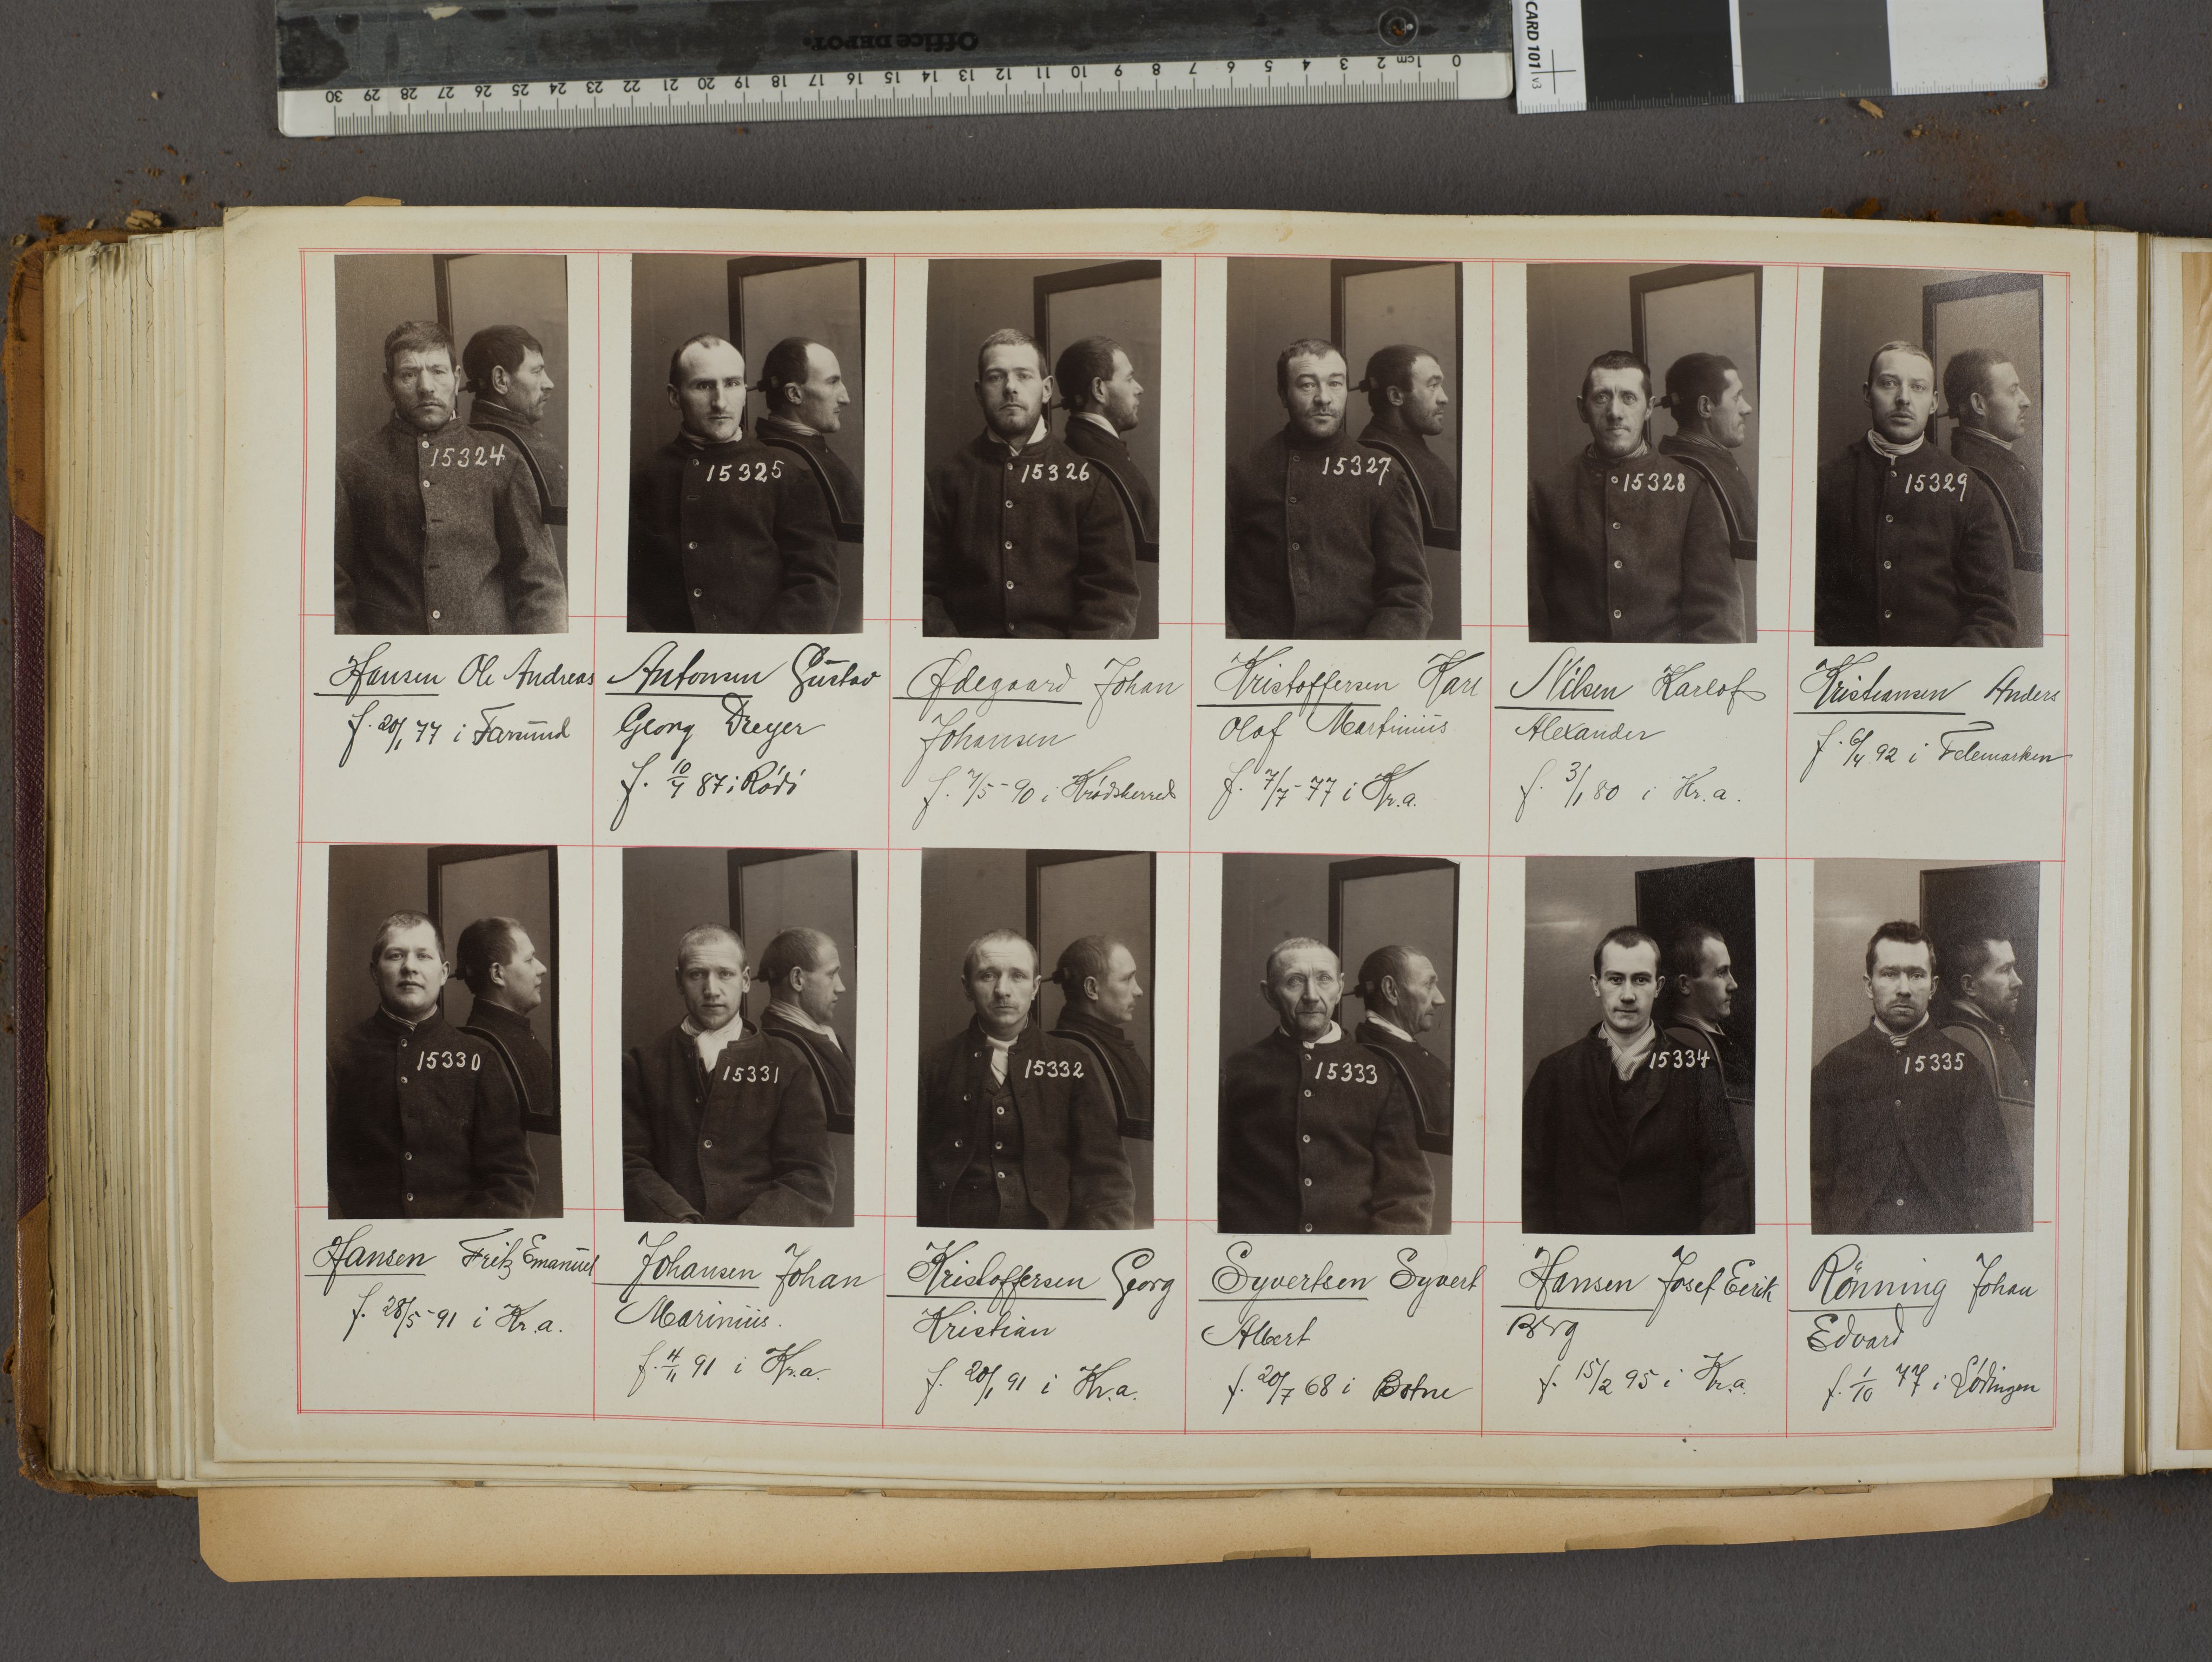 Office DEPOT.
0 1cm 2 3 4 5 6 7 8 9 10 11 12 13 14 15 16 17 18 19 20 21 22 23 24 25 26 27 28 29 30
CARD 101 v3
15324
15325
15326
15327
15328
15329
Hansen Ole Andreas
f. 20/1 77 i Farsund
Antonsen Gustav
Georg Dreyer
f. 10/7 87 i Rödö
Ødegaard Johan
Johansen
f. 7/5-90 i Krødsherred
Kristoffersen Karl
Olaf Martinius
f. 7/7-77 i Kr.a.
Nilsen Karlof
Alexander
f. 3/1 80 i Kr.a.
Kristiansen Anders
f. 6/4 92 i Telemarken
15330
15331
15332
15333
15334
15335
Hansen Fritz Emanuel
f. 28/5-91 i Kr.a.
Johansen Johan
Marinius.
f. 4/11 91 i Kr.a.
Kristoffersen Georg
Kristian
f. 20/1 91 i Kr.a.
Syvertsen Syvert
Albert
f. 20/7 68 i Botne
Hansen Josef Eerik
Berg
f. 15/2 95 i Kr.a.
Rönning Johan
Edvard
f. 1/10 77 i Lödingen